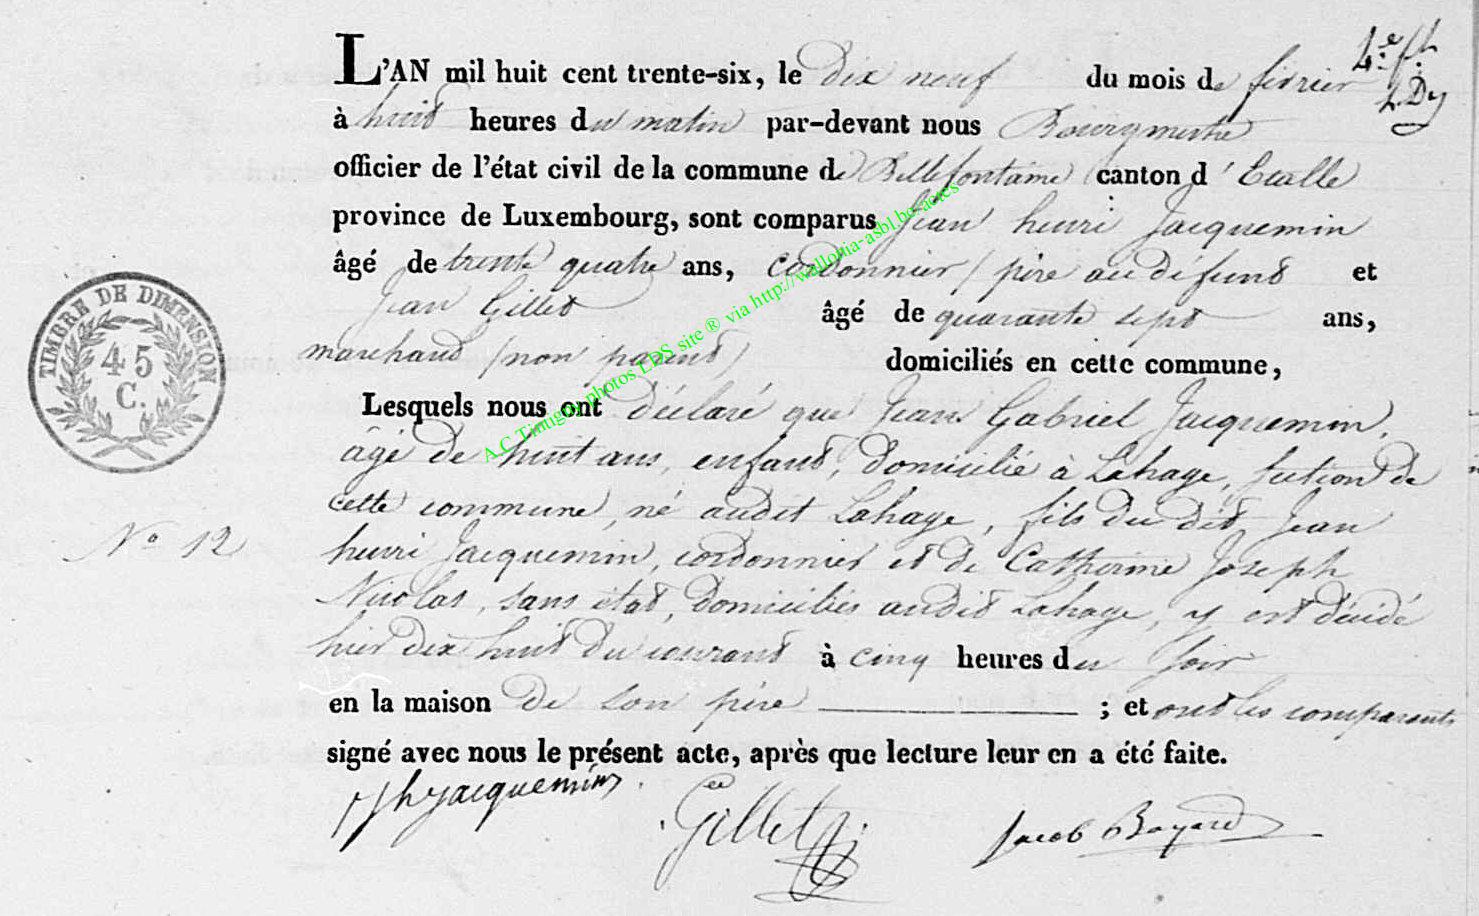 L'AN mil huit cent trente-six, le dix neuf du mois de fevrier
à huit heures du matin par-devant nous Bourgmestre
officier de l'état civil de la commune de Bellefontaine canton d'Etalle
province de Luxembourg, sont comparus Jean henri Jacquemin
âgé de trente quatre ans, cordonnier (père au défunt et
Jean Gillet âgé de quarante sept ans,
marchand (non parent) domiciliés en cette commune,
Lesquels nous ont déclaré que Jean Gabriel Jacquemin,
âgé de huit ans, enfant, domicilié à Lahage, section de
cette commune, né audit Lahage, fils du dit Jean
henri Jacquemin, cordonnier et de Catherine Joseph
Nicolas, sans état, domiciliés audit Lahage, y est décédé
hier dix huit du courant à cinq heures du soir
en la maison de son père ; et ont les comparants
signé avec nous le présent acte, après que lecture leur en a été faite.
TIMBRE DE DIMENSION
45
C.
No 12
A.C Tintigny photos LDS site ® via http://wallonia-asbl.be/actes
jhjacquemin
Gillet
Jacob Bayard